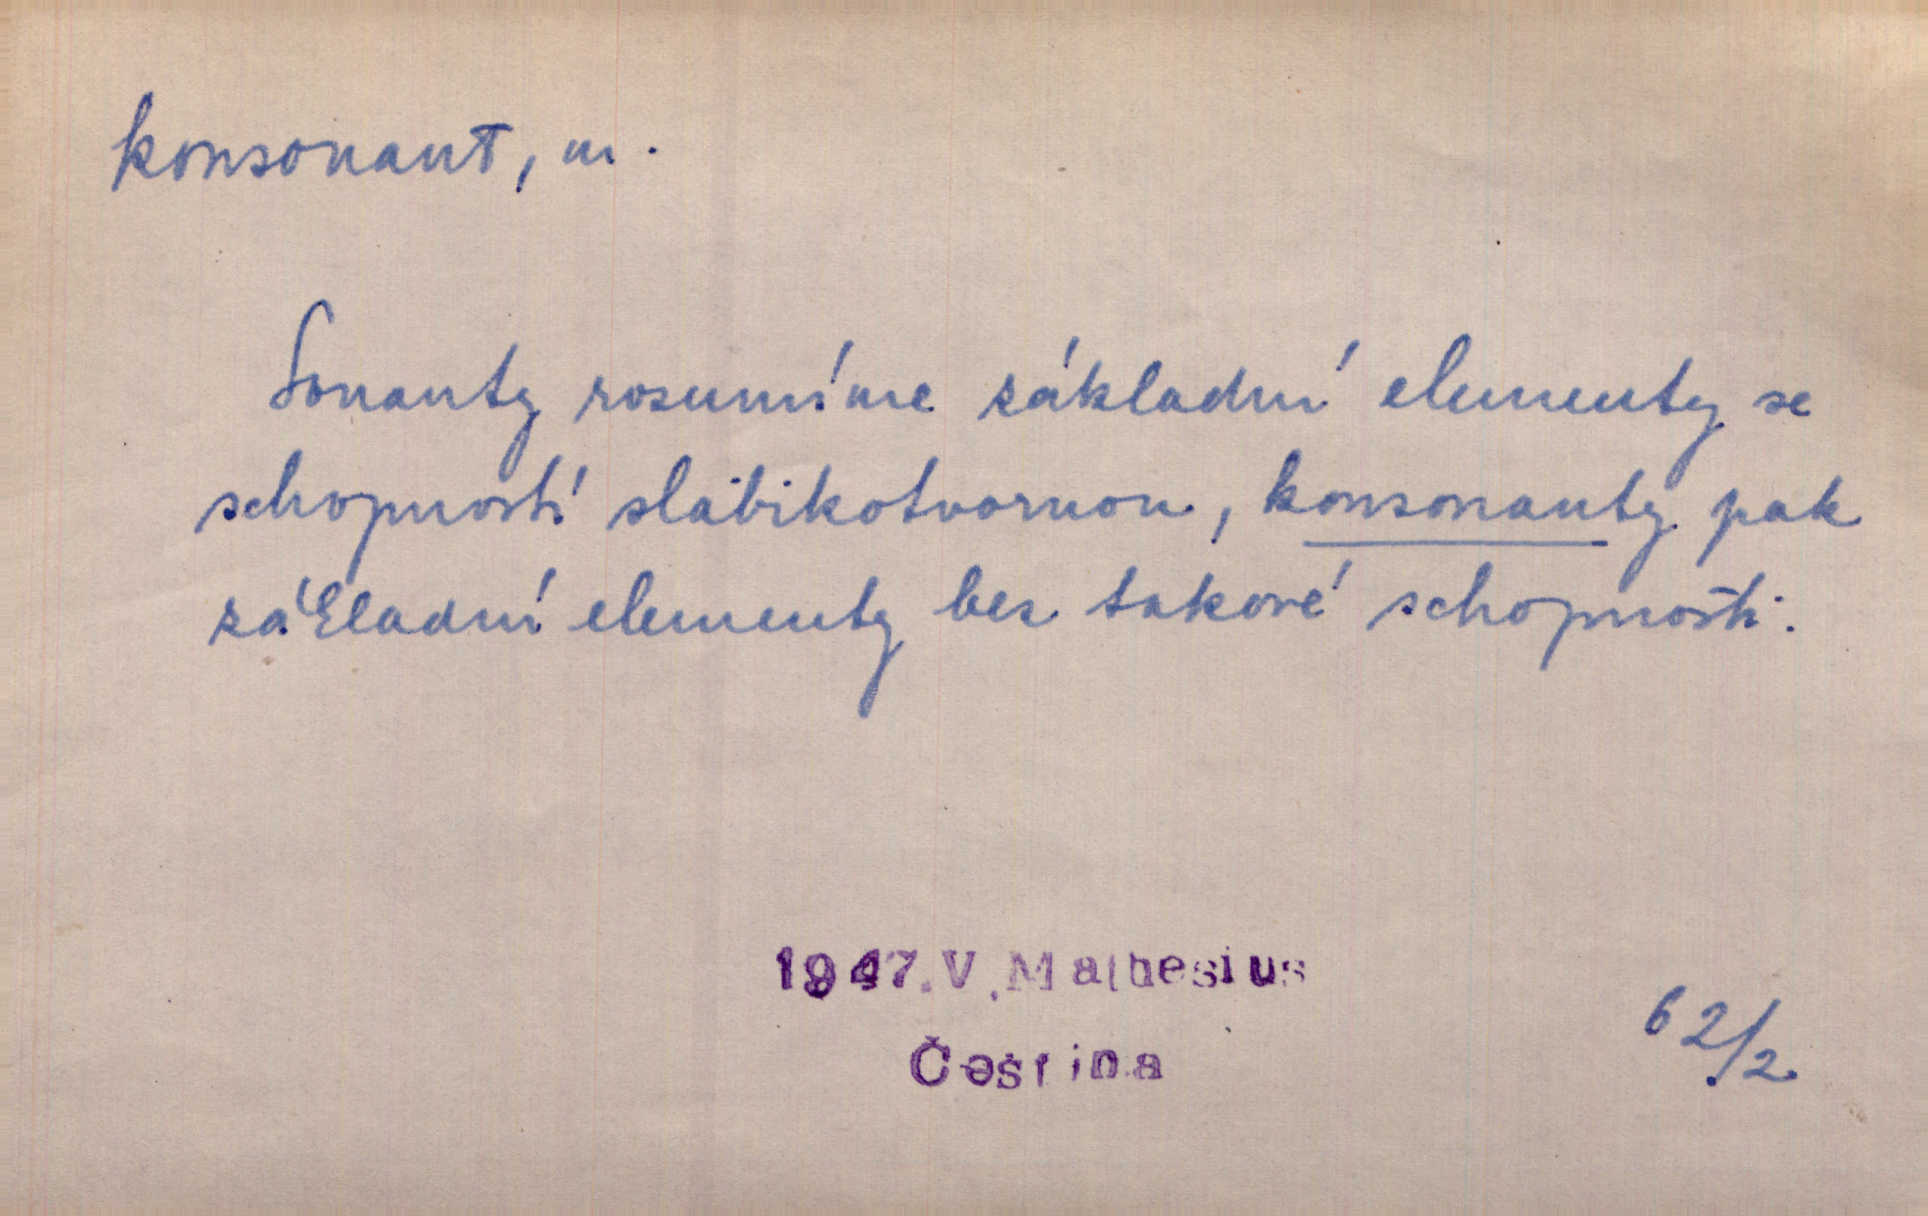 konsonant, m.
Sonanty rozumíme základní elementy se
schopností slabikotvornou, konsonanty pak
základní elementy bez takové schopnosti.
1947.V.Mathesius
Čeština
62/2